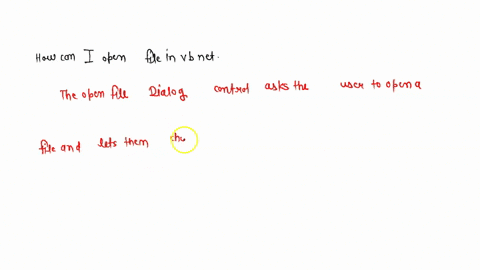 How can I open file in vb net.
The open file Dialog control asks the user to open a
file and lets them